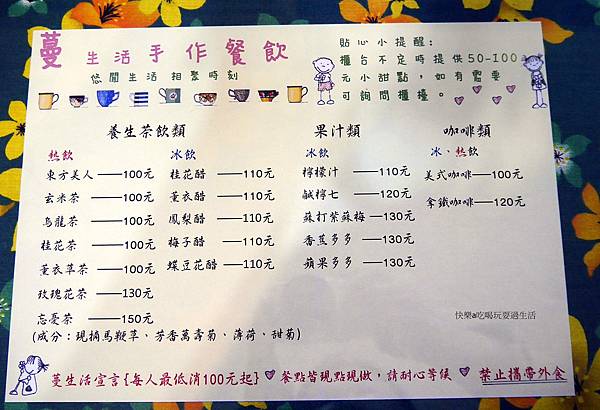 蔓生活手作餐飲
悠閒生活 相聚時刻
貼心小提醒:
櫃台不定時提供50-100
元小甜點,如有需要
可詢問櫃檯。
養生茶飲類
熱飲
東方美人——100元
玄米茶——100元
烏龍茶——100元
桂花茶——100元
薰衣草茶——100元
玫瑰花茶——130元
忘憂茶——150元
(成分:現摘馬鞭草、芳香萬壽菊、薄荷、甜菊)
冰飲
桂花醋——110元
薰衣醋——110元
鳳梨醋——110元
梅子醋——110元
蝶豆花醋—110元
果汁類
冰飲
檸檬汁——110元
鹹檸七——120元
蘇打紫蘇梅—130元
香蕉多多——130元
蘋果多多——130元
咖啡類
冰、熱飲
美式咖啡——100元
拿鐵咖啡——120元
快樂a吃喝玩耍過生活
蔓生活宣言{每人最低消100元起}♥餐點皆現點現做,請耐心等候♥禁止攜帶外食